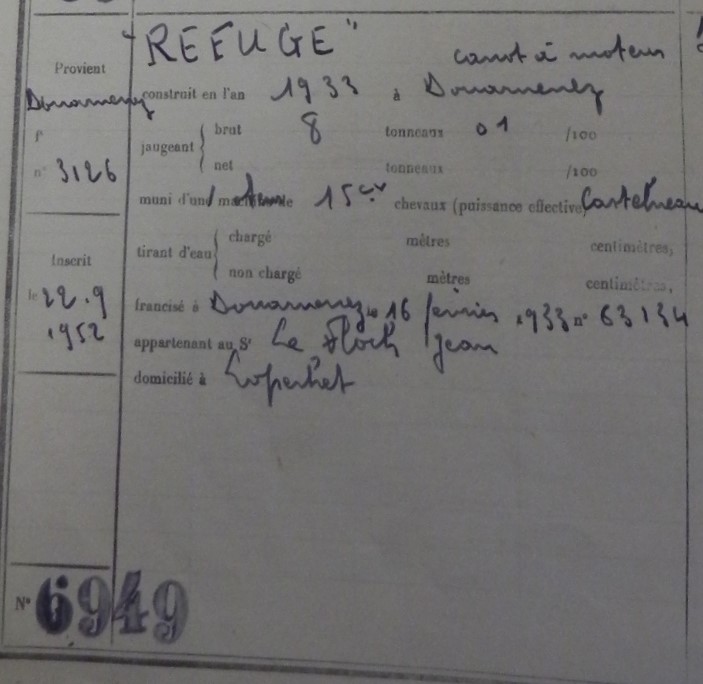 "REFUGE"
canot à moteur
Provient
Douarnenez
fº
nº 3126
construit en l'an 1933 à Douarnenez
jaugeant { brut 8 tonneaux 01 /100
net tonneaux /100
muni d'un 15 cv chevaux (puissance effective) Castelneau
tirant d'eau { chargé mètres centimètres,
non chargé mètres centimètres,
Inscrit
le 22.9
1952
francisé à Douarnenez le 16 février 1933 nº 63134
appartenant au Sr Le Floch Jean
domicilié à Loperhet
Nº 6949